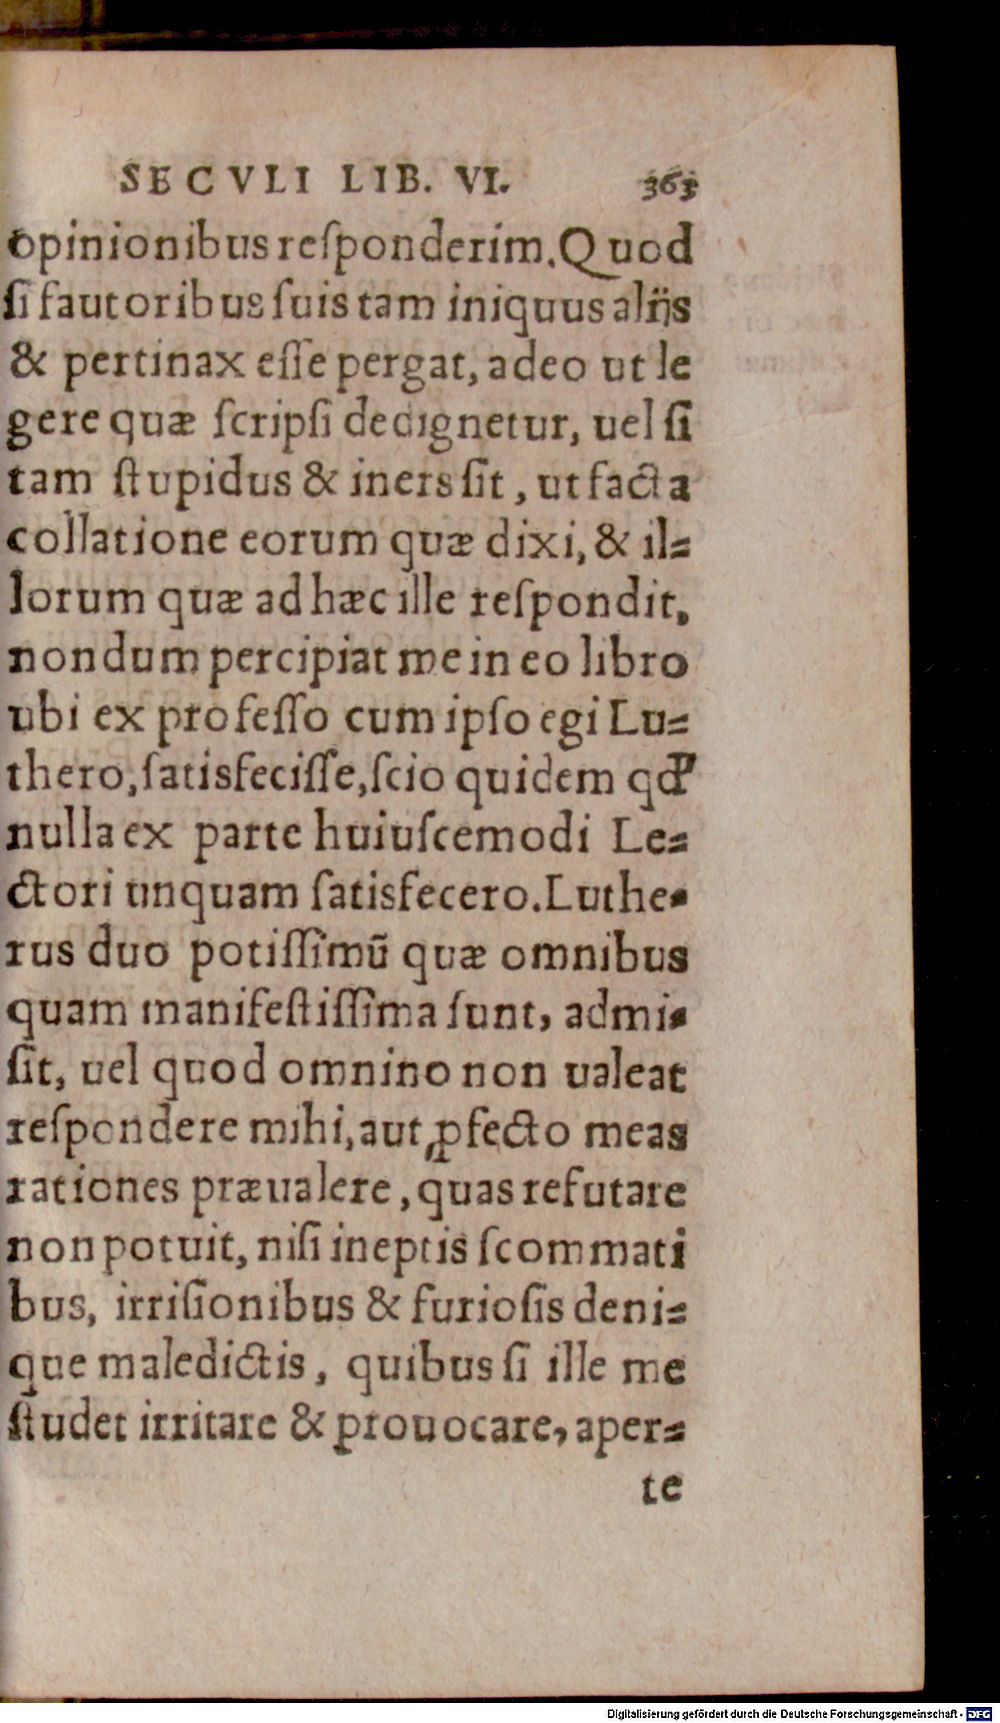 SECVLI LIB. VI. 363
opinionibus reſponderim. Quod
ſi fautoribus ſuis tam iniquus alijs
& pertinax eſſe pergat, adeo ut le
gere quæ ſcripſi dedignetur, uel ſi
tam ſtupidus & iners ſit, ut facta
collatione eorum quæ dixi, & il⸗
lorum quæ ad hæc ille reſpondit,
nondum percipiat me in eo libro
ubi ex profeſſo cum ipſo egi Lu⸗
thero, ſatisfeciſſe, ſcio quidem qđ
nulla ex parte huiuſcemodi Le⸗
ctori unquam ſatisfecero. Luthe⸗
rus duo potiſſimū quæ omnibus
quam manifeſtiſſima ſunt, admi⸗
ſit, uel quod omnino non ualeat
reſpondere mihi, aut ꝓfecto meas
rationes præualere, quas refutare
non potuit, niſi ineptis ſcommati
bus, irriſionibus & furioſis deni⸗
que maledictis, quibus ſi ille me
ſtudet irritare & prouocare, aper⸗
te
Digitalisierung gefördert durch die Deutsche Forschungsgemeinschaft - DFG